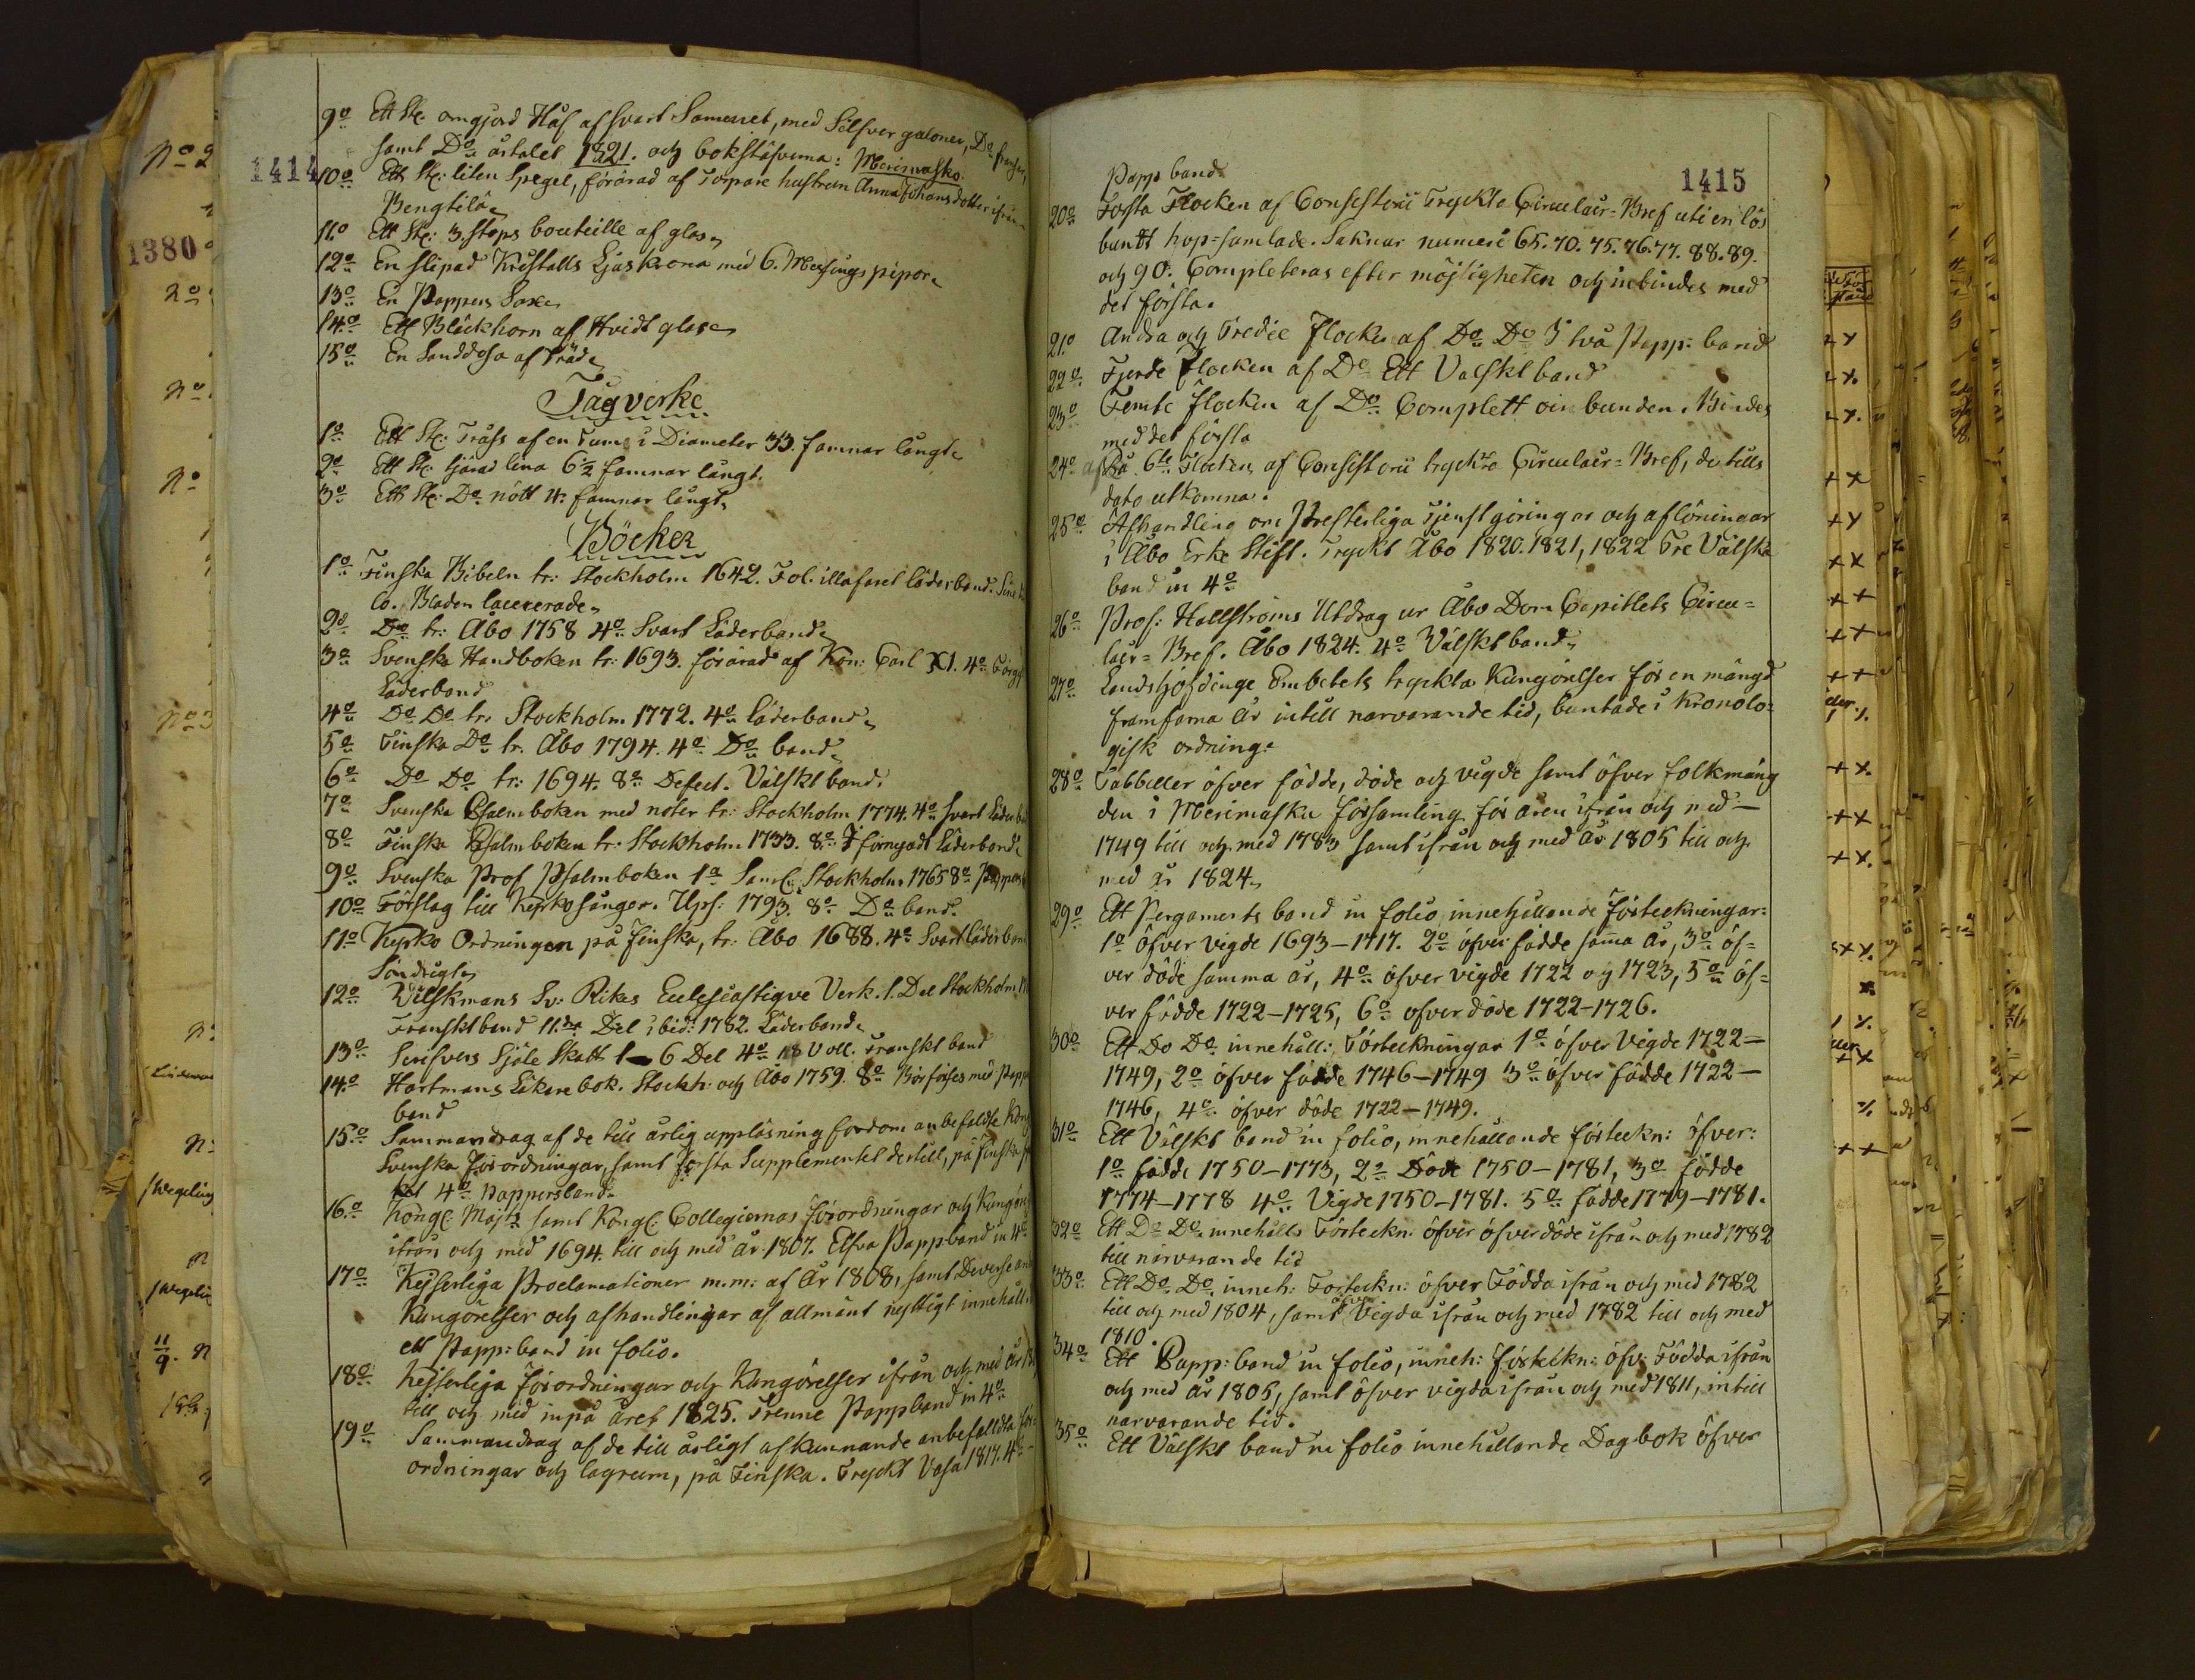 1414
9o Ett St: omgjord Håf af svart Sammet, med Silfver galoner, Do fransar,
samt Do årtalet 1821. och bokstäfverna: Merimasko.
10o Ett St: liten Spegel, förärad af Torpare hustrun Anna Johansdotter ifrån
Bengtilä
11.o Ett St: 3. stops bouteille af glas
12o En slipad Kristalls Ljuskrona med 6. Messings pipor
13o En Pappers Sax
14.o Ett Bläckhorn af Hvidt glas
15o En Sanddosa af Träd
Tågverke
1o Ett St: Tråss af en Tum i Diameter 33. famnar långt
2o Ett St: tjärad lina 6½ famnar långt.
3o Ett St: Do nött 4. famnar långt
Böcker
1o Finska Bibeln tr: Stockholm 1642. Fol. illa faret läderband.
Co. Bladen lacererade
2o Do tr: Åbo 1758 4o Svart Läderband
3o Svenska Handboken tr: 1693. förärad af Kon: Carl XI. 4o
Läderband
4o Do Do tr. Stockholm 1772. 4o läderband
5o Finska Do tr. Åbo 1794. 4o Do band
6o Do Do tr: 1694. 8o Defect. Välskt band.
7o Svenska Psalmboken med noter tr: Stockholm 1774. 4o svart Läderband
8o Finska Psalmboken tr. Stockholm 1733. 8o I förnyadt läderband
9o Svenska Prof Psalmboken 1a Saml: Stockholm 1765 8o Pappers
10o Förslag till Kyrkosånger. Ups: 1793. 8o Do band.
11.o Kyrko Ordningen på finska, tr: Åbo 1688. 4o Svart läderband
Söndrigt
12o Wilskmans Sv: Rikes Ecclesiastique Verk. 1. Del Stockholm
Franskt band 11.dra Del ibid: 1782. Läderband
13o Scrivers Själe Skatt 1–6 Del 4o 18 Voll. Franskt band
14.o Hartmans Läkare bok. Stockh: och Åbo 1759. 8o Bör förses med Papp
band
15.o Sammandrag af de till årlig uppläsning fordom anbefaldte Kong
Svenska förordningar, samt första Supplementet dertill, på finska
4o Pappersband
16.o Kongl: Maj:ts samt Kongl: Collegiernas förordningar och Kungör
ifrån och med 1694. till och med år 1807. Elfva Pappband in 4o
17o Kejserliga Proclamationer m.m: af År 1808, samt Diverse
Kungörelser och afhandlingar af allmänt nyttigt innehåll.
ett Papp:band in folio.
18o Kejserliga förordningar och Kungörelser ifrån och med år
till och med inpå året 1825. Trenne Pappband in 4o
19o Sammandrag af de till årligt afkunnande anbefalldta för:
ordningar och lagrum, på Finska. Tryckt Vasa 1817. 4o
1415
Papp band
20o Första Flocken af Consistorii Tryckte Circulair-Bref uti en lös
buntt hop-samlade. Saknar numeri 65. 70. 75. 76. 77. 88. 89.
och 90. Completeras efter möjligheten och inbindes med
det första.
21.o Andra och Tredie flocken af Do Do I två Papp: band
22o Fjerde flocken af Do Ett Välskt band
23o Femte flocken af Do Complett oinbunden. Bindes
med det första
24o af 6te Flocken af Consistorii tryckta Circulair-Bref, de tills
dato utkomna.
25o Afhandling om Presterliga Tjenstgöringar och aflöningar
i Åbo Erke Stift. Tryckt Åbo 1820. 1821, 1822 Tre Välska
band in 4o
26o Prof: Hallströms Utdrag ur Åbo Dom Capitlets Circu=
lair= Bref. Åbo 1824. 4o Välskt band
27o Landshöfdinge Embetets tryckta Kungörelser för en mängd
framfarna år intill närvarande tid, buntade i Kronolo=
gisk ordning
28o Tabbeller öfver födde, döde och vigde samt öfver folkmäng
den i Merimasku församling för åren ifrån och med
1749 till och med 1783 samt ifrån och med år 1805 till och
med år 1824
29o Ett Pergaments band in folio innehållande förteckningar:
1o öfver vigde 1693–1717. 2o öfver födde samma år, 3o öf=
ver döde samma år, 4o öfver vigde 1722 och 1723, 5o öf=
ver födde 1722–1725, 6o öfver döde 1722–1726.
30o Ett Do Do innehåll: Förteckningar 1o öfver Vigde 1722–
1749, 2o öfver födde 1746–1749 3o öfver födde 1722–
1746, 4o öfver döde 1722–1749.
31o Ett Välskt band in folio, innehållande förteckn: öfver:
1o födde 1750–1773, 2o Döde 1750–1781, 3o födde
1774–1778 4o Vigde 1750–1781. 5o födde 1779–1781.
32o Ett Do Do innehålls Förteckn: öfver öfver döde ifrån och med 1782
till närvarande tid
33o Ett Do Do inneh: Förteckn: öfver Födda ifrån och med 1782
till och med 1804, samt öfver Vigda ifrån och med 1782 till och med
1810.
34o Ett Papp:band in folio, inneh: förteckn: öfv: Födda ifrån
och med år 1805, samt öfver vigda ifrån och med 1811, intill
närvarande tid.
35o Ett Välskt band in folio innehållande Dagbok öfver
No 2
1380
2o
No
No
No 3
/Wegeling